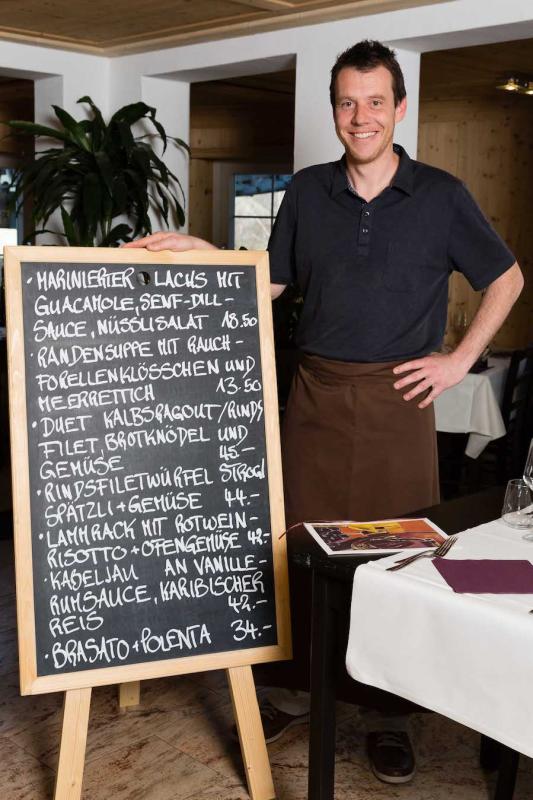 · MARINIERTER LACHS MIT
GUACAMOLE, SENF-DILL-
SAUCE, NÜSSLISALAT 18.50
· RANDENSUPPE MIT RAUCH-
FORELLENKLÖSSCHEN UND
MEERRETTICH 13.50
· DUET KALBSRAGOUT/RINDS
FILET, BROTKNÖDEL UND
GEMÜSE 45.-
· RINDSFILETWÜRFEL STROG.
SPÄTZLI + GEMÜSE 44.-
· LAMMRACK MIT ROTWEIN-
RISOTTO + OFENGEMÜSE 42.-
· KABELJAU AN VANILLE-
RUMSAUCE, KARIBISCHER
REIS 42.-
· BRASATO + POLENTA 34.-